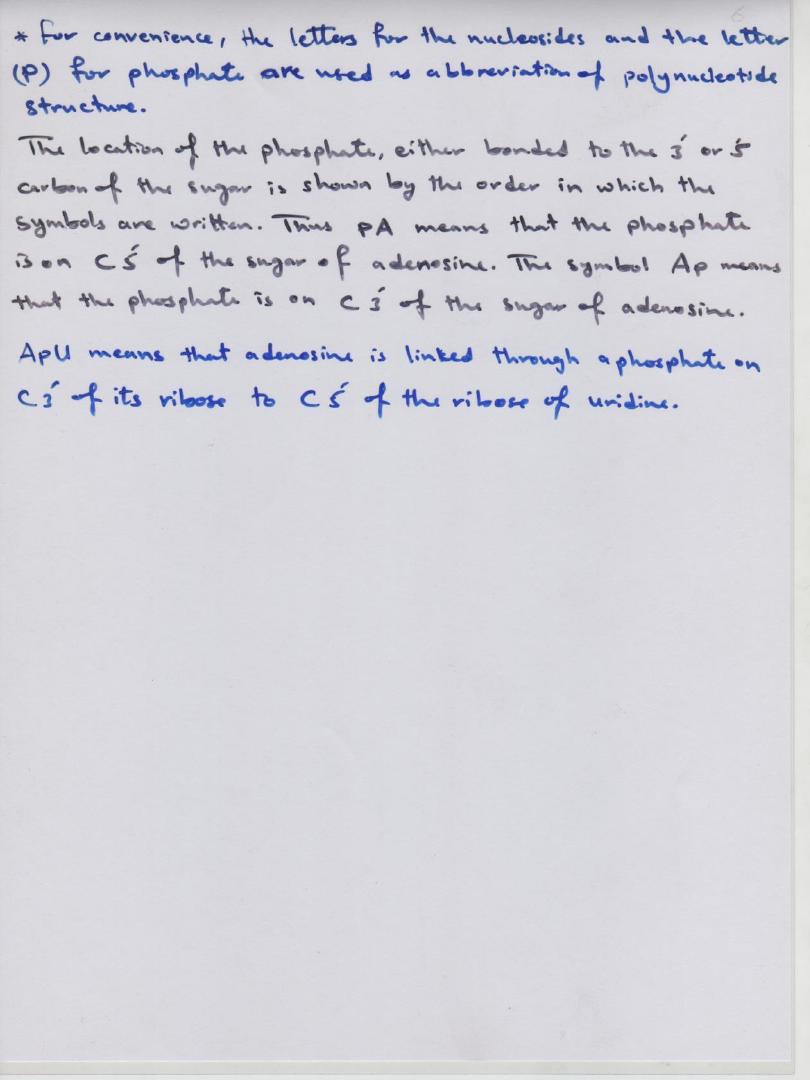 6
* For convenience, the letters for the nucleosides and the letter
(P) for phosphate are used as abbreviation of polynucleotide
structure.
The location of the phosphate, either bonded to the 3′ or 5′
carbon of the sugar is shown by the order in which the
symbols are written. Thus pA means that the phosphate
is on C5′ of the sugar of adenosine. The symbol Ap means
that the phosphate is on C3′ of the sugar of adenosine.
ApU means that adenosine is linked through a phosphate on
C3′ of its ribose to C5′ of the ribose of uridine.